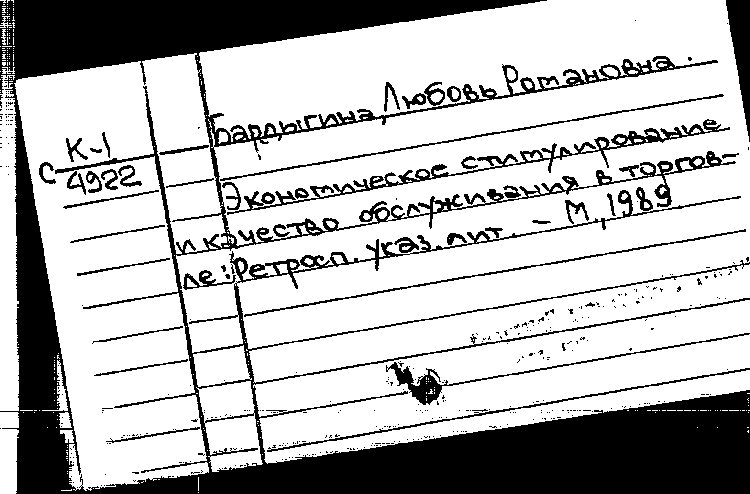 Бардыгина, Любовь Романовна.
С К-1
4922
Экономическое стимулирование
и качество обслуживания в торгов-
ле: Ретросп. указ. лит. - М., 1989